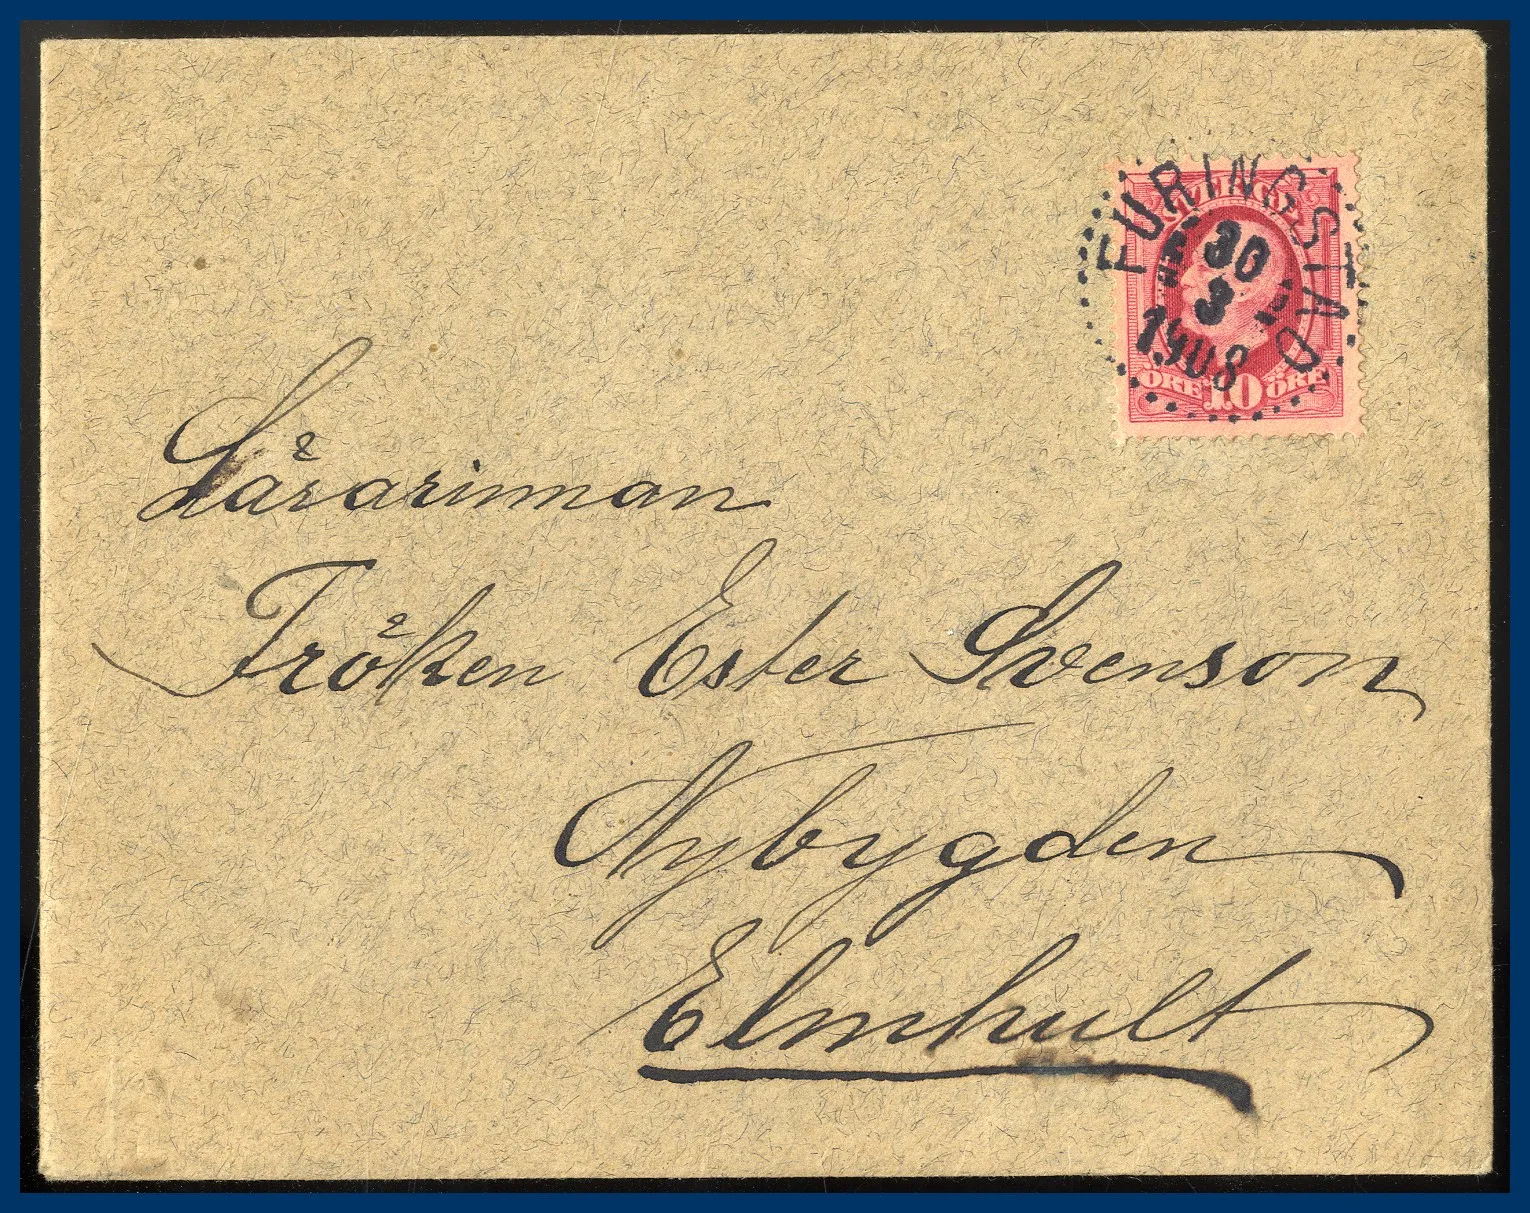 FURINGSTAD
30
3
1908
SVERIGE
ÖRE 10 ÖRE
Lärarinnan
Fröken Ester Svenson
Nybygden
Elmhult